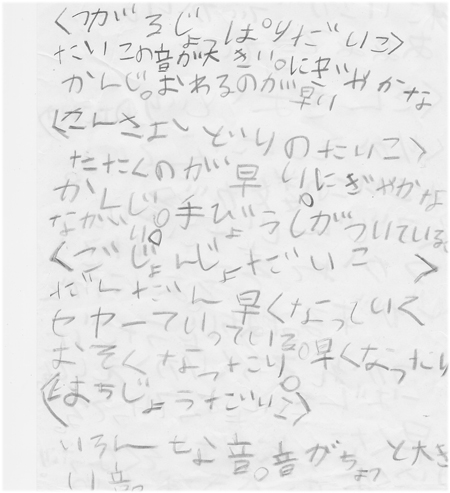 〈つがるじょっぱりだいこ〉
たいこの音が大きい。にぎやかな
かんじ。おわるのが早い
〈さんさおどりのたいこ〉
たたくのが早い。にぎやかな
かんじ。手びょうしがついている。
ながい。
〈ごじんじょだいこ〉
だんだん早くなっていく
セヤーていっている。早くなったり
おそくなったり。
〈はちじょうだいこ〉
いろんな音。音がちょっと大き
い音。